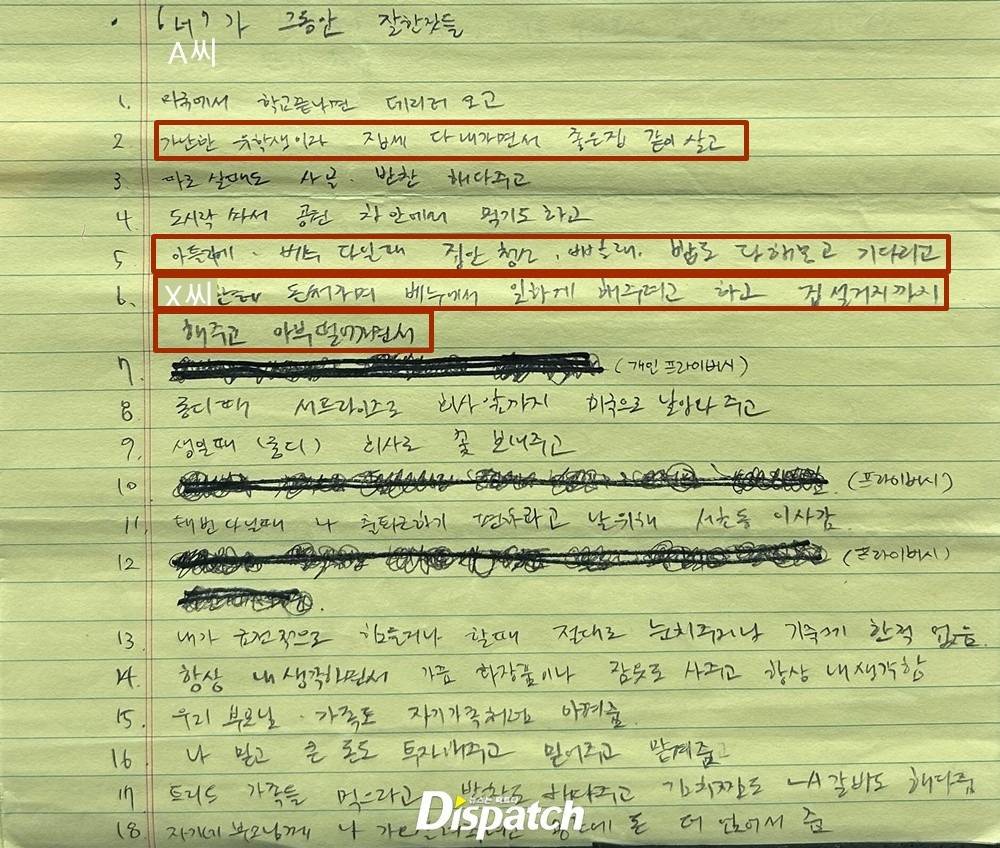 • '너'가 그동안 잘한짓들
A씨
1. 미국에서 학교끝나면 데리러 오고
2 가난한 유학생이라 집세 다 내가면서 좋은집 같이 살고
3. 따로 살때도 사골. 반찬 해다주고
4 도시락 싸서 공원 차안에서 먹기도 하고
5 베누 다닐때 집안 청소, 빨래. 밥도 다해놓고 기다리고
6. X씨한테 돈써가며 베누에서 일하게 해주려고 하고 집 설거지까지
해주고 아부떨어가면서
7. (개인 프라이버시)
8 롱디때 서프라이즈로 회사앞까지 미국으로 날아와 주고
9. 생일때 (롱디) 회사로 꽃 보내주고
10 (프라이버시)
11, 다닐때 나 출퇴근하기 편하라고 날위해 서초동 이사감.
12 (프라이버시)
13. 내가 금전적으로 힘들거나 할때 절대로 눈치주거나 기죽게 한적 없음.
14. 항상 내생각하면서 가끔 화장품이나 잠옷도 사주고 항상 내생각함
15. 우리 부모님. 가족도 자기가족처럼 아껴줌.
16 나 믿고 큰 돈도 투자해주고 믿어주고 맡겨줌
17 가족들 먹으라고 반찬도 해다주고 LA갈비도 해다줌
18. 나 돈 더 얹어서 줌
뉴스는 팩트다
Dispatch